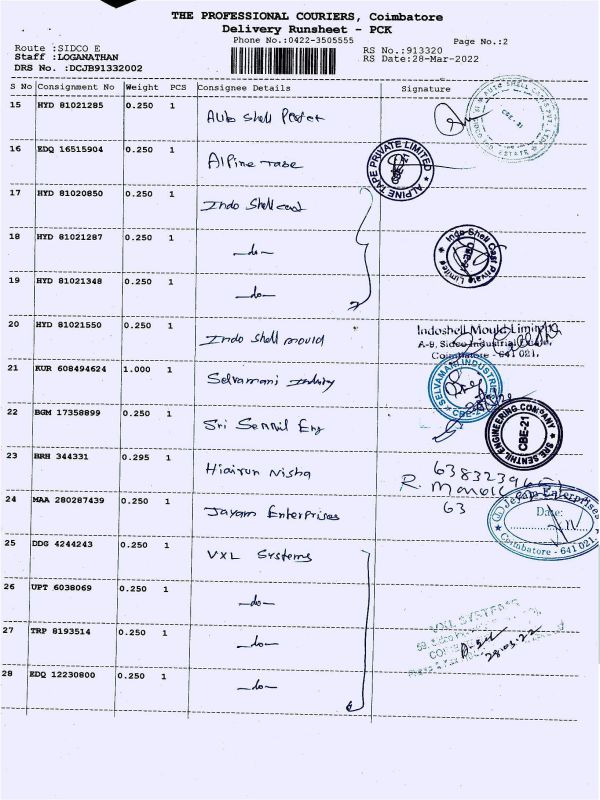 THE PROFESSIONAL COURIERS, Coimbatore
Delivery Runsheet - PCK
Phone No.:0422-3505555
Page No.:2
Route :SIDCO E
RS No.:913320
Staff :LOGANATHAN
RS Date:28-Mar-2022
DRS No. :DCJB91332002
S No Consignment No Weight PCS Consignee Details Signature
15 HYD 81021285 0.250 1 Auto Shell
16 EDQ 16515904 0.250 1 Alpine Tape
ALPINE TAPE PRIVATE LIMITED
17 HYD 81020850 0.250 1 Indo Shell cast
18 HYD 81021287 0.250 1 -do-
Indo Shell Cast Private Limited
19 HYD 81021348 0.250 1 -do-
20 HYD 81021550 0.250 1 Indo Shell mould
Indoshell Mould Limited
A-9, Sidco Industrial Estate,
Coimbatore - 641 021.
21 KUR 608494624 1.000 1 Selvamani Industry
SELVAMANI INDUSTRIES
CBE-21
22 BGM 17358899 0.250 1 Sri Senthil Eng
SRE SENTHIL ENGINEERING COMPANY
CBE-21
23 BRH 344331 0.295 1 Hiairun Nisha
24 MAA 280287439 0.250 1 Jayam Enterprises
63
Jayam Enterprises
Date:
Coimbatore - 641 021.
25 DDG 4244243 0.250 1 VXL Systems
26 UPT 6038069 0.250 1 -do-
VXL SYSTEMS
27 TRP 8193514 0.250 1 -do-
28.03.22
28 EDQ 12230800 0.250 1 -do-